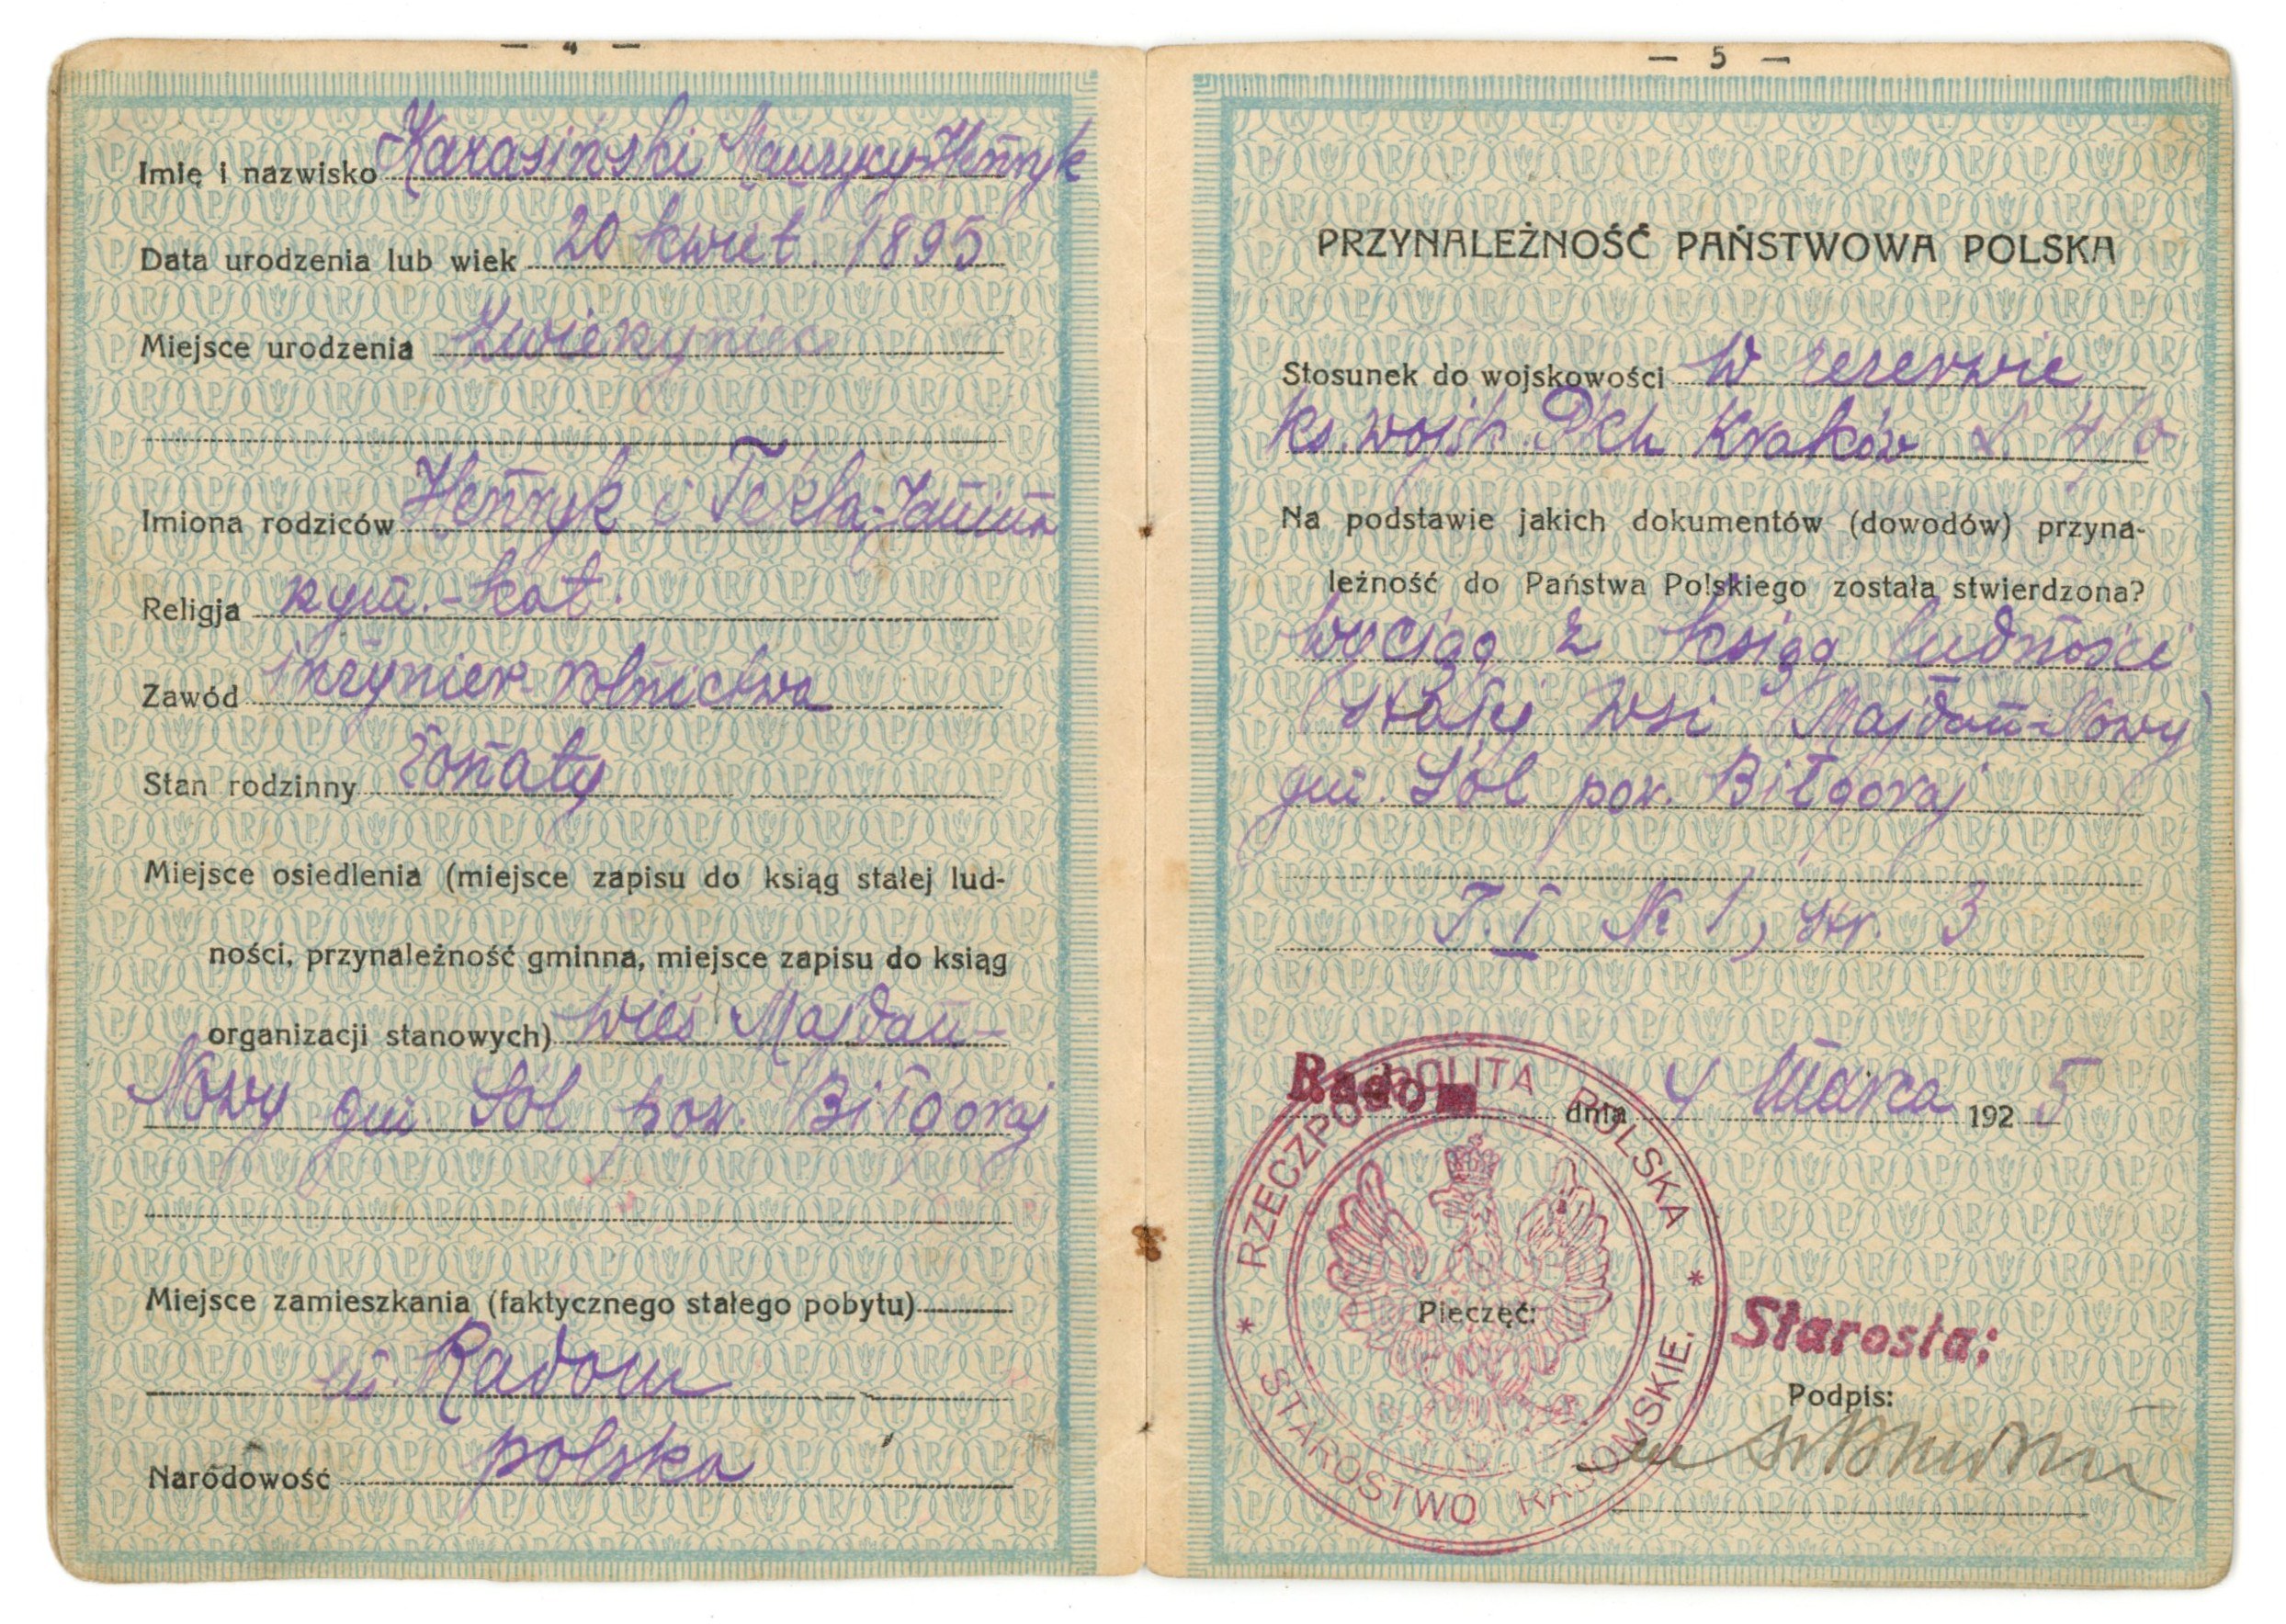 — 4 —
Imię i nazwisko Karasiński Maurycy-Henryk
Data urodzenia lub wiek 20 kwiet. 1895
Miejsce urodzenia Zwierzyniec
Imiona rodziców Henryk i Tekla-Janina
Religja rzym.-kat.
Zawód inżynier-rolnictwa
Stan rodzinny żonaty
Miejsce osiedlenia (miejsce zapisu do ksiąg stałej lud-
ności, przynależność gminna, miejsce zapisu do ksiąg
organizacji stanowych) wieś Majdan-
Nowy gm. Sól pow. Biłgoraj
Miejsce zamieszkania (faktycznego stałego pobytu)
m. Radom
Narodowość polska
— 5 —
PRZYNALEŻNOŚĆ PAŃSTWOWA POLSKA
Stosunek do wojskowości w rezerwie
ks. wojsk. Kraków
Na podstawie jakich dokumentów (dowodów) przyna-
leżność do Państwa Polskiego została stwierdzona?
wyciąg z ksiąg ludności
stałej wsi Majdan-Nowy
gm. Sól pow. Biłgoraj
T. I № 1, str. 3
Radom dnia 4 Marca 1925
RZECZPOSPOLITA POLSKA
* STAROSTWO RADOMSKIE. *
Pieczęć:
Starosta:
Podpis: